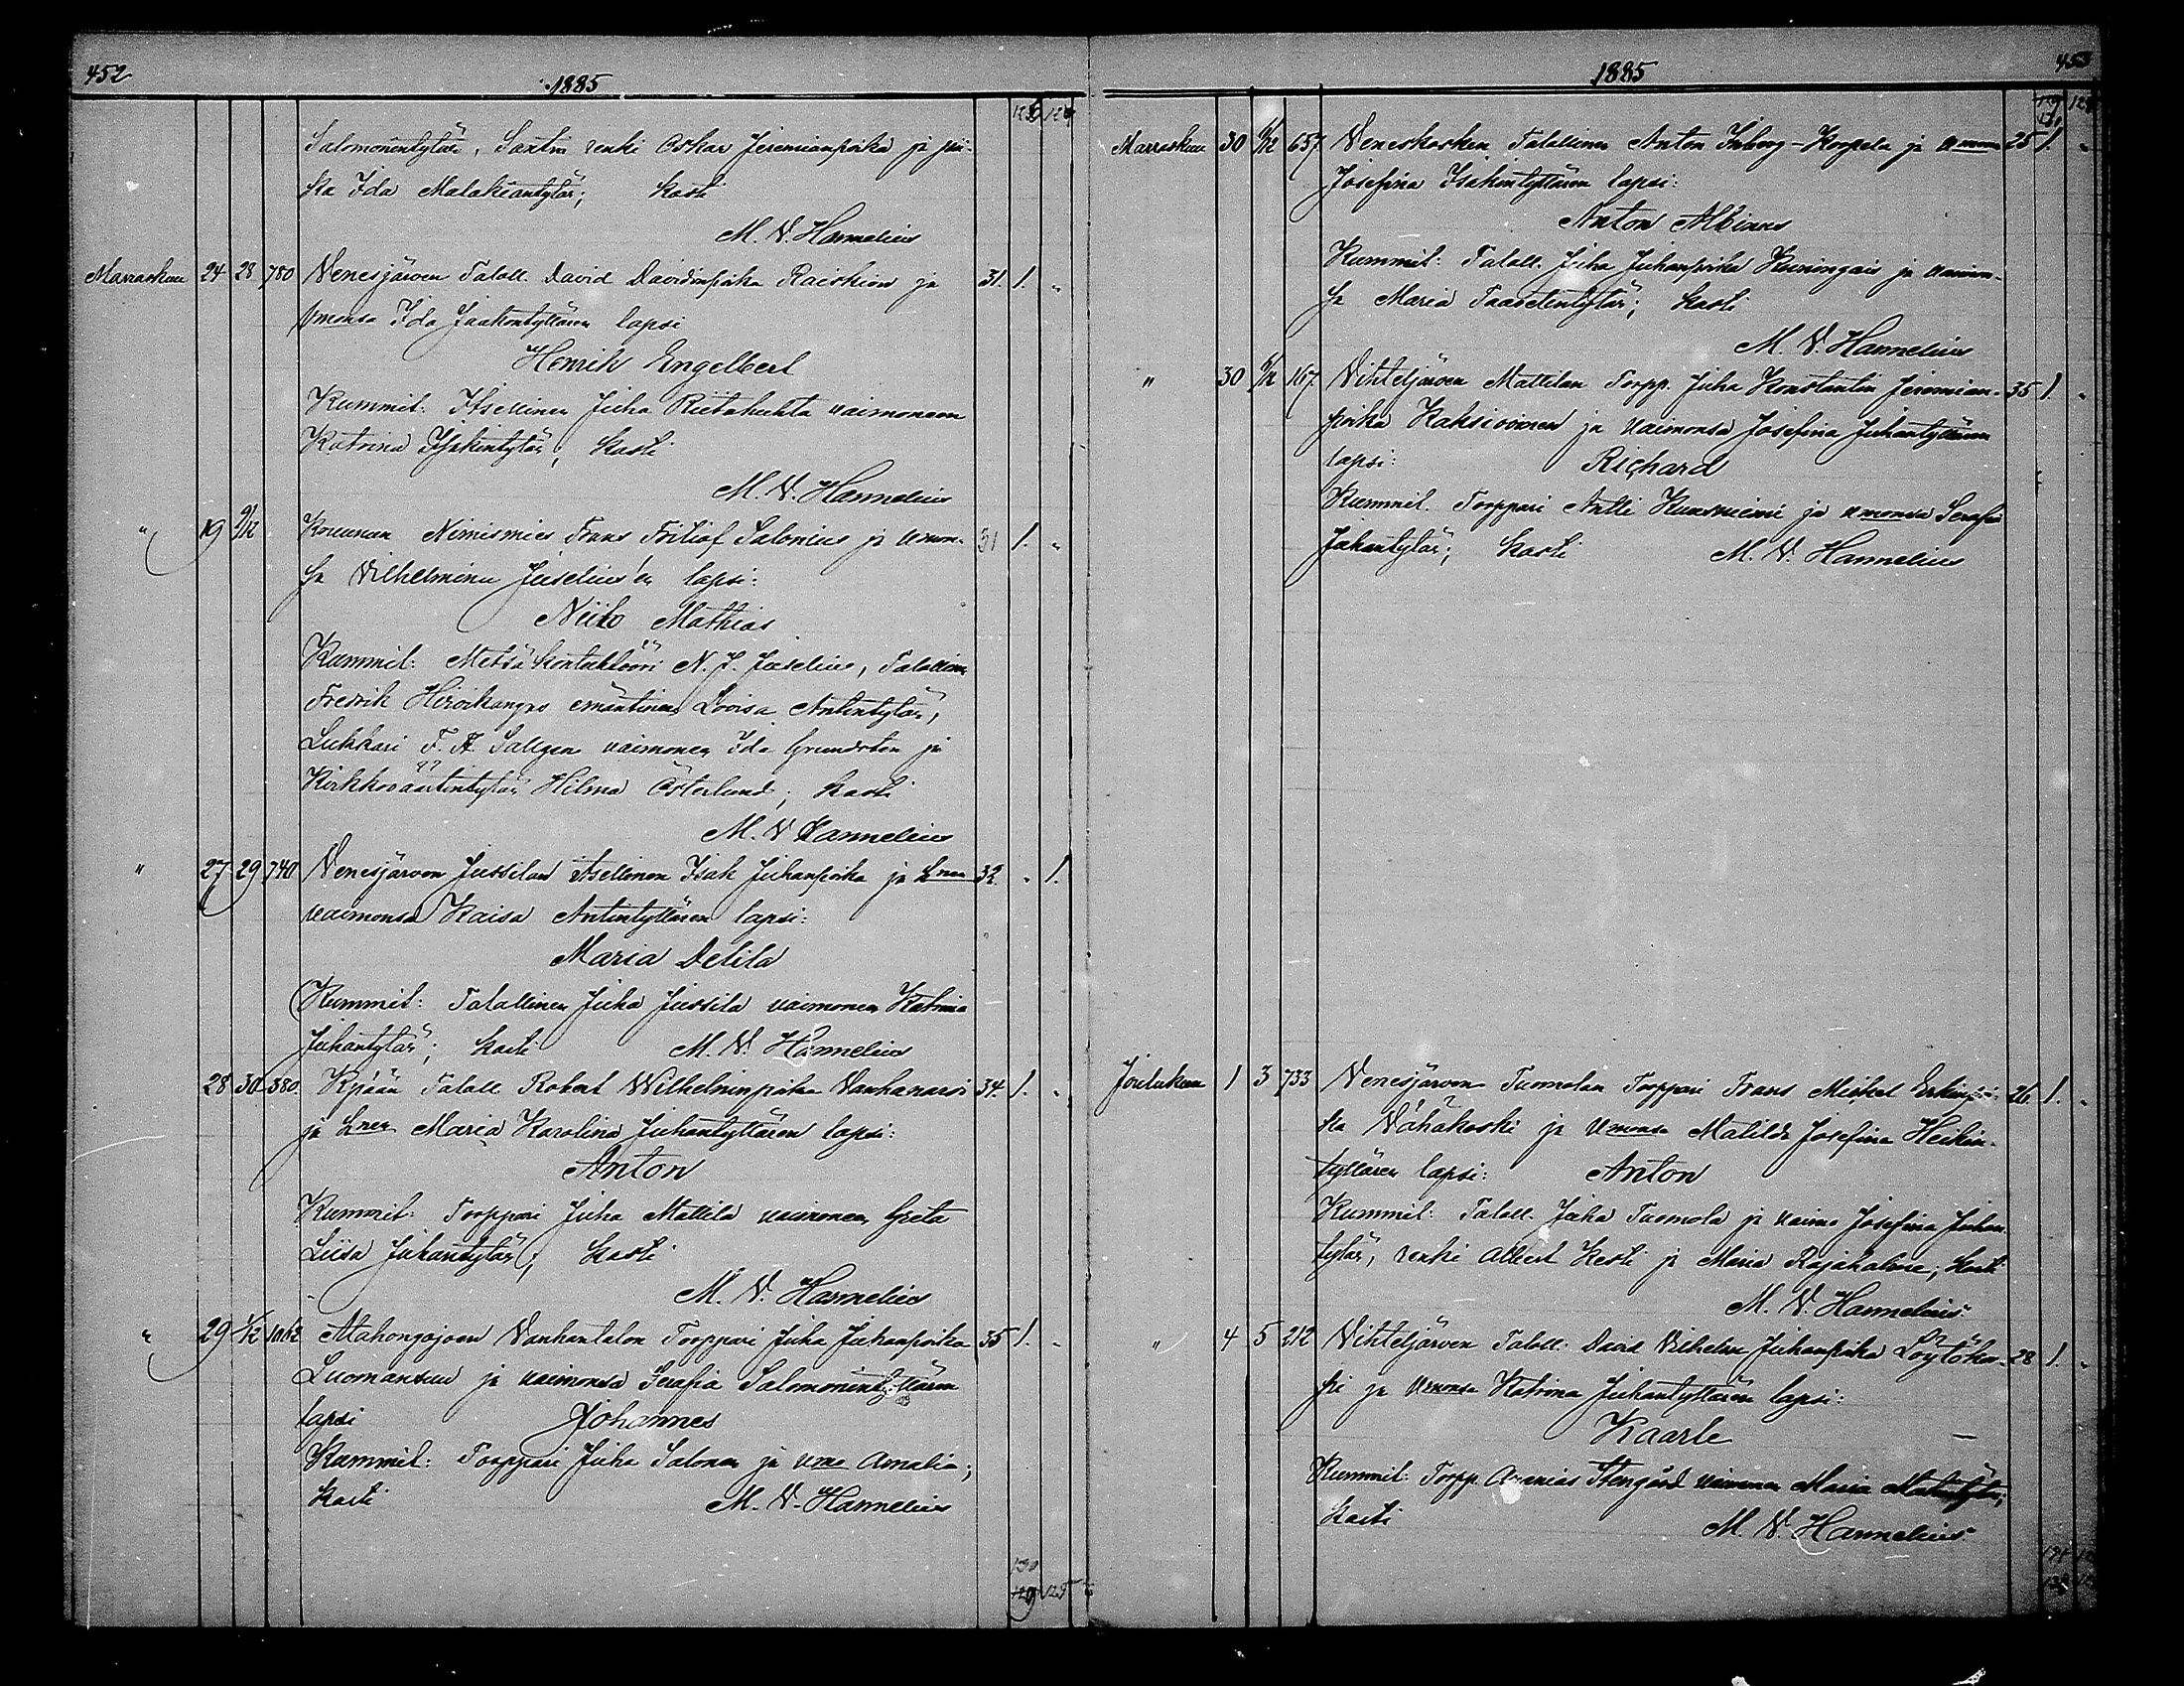 452
1885
Salomonintytär, Santra renki Oskar Jeremianpoika ja pii-
ka Ida Malakiantytär; kasti
M. V. Hannelius
Marraskuu 24 28 780 Venesjärven Taloll. David Davidinpoika Raiskion ja 31. 1. "
Vmonsa Ida Jaakontyttären lapsi
Henrik Engelbert
Kummit: Itsellinen Juha Riitahuhta vaimoneen
Katrina Isakintytär; kasti
M. V. Hannelius
" 19 9/12 Kouunan Nimismies Frans Fritiof Salonius ja vmon- 31 1. "
sa Vilhelmina Juselius'en lapsi:
Niilo Mathias
Kummit: Metsäkontuktööri N. J. Juselius, Talollinen
Fredrik Hirvikangas emäntineen Lovisa Antintytär,
Lukkari F. A. Sallgen vaimoneen Ida Grundsten ja
Kirkkoväärtintytär Hilma Österlund; kasti
M. V. Hannelius
" 27 29 740 Venesjärven Jussilan Itsellinen Isak Juhanpoika ja Lnen 32. " 1.
vaimonsa Kaisa Antintyttären lapsi:
Maria Delila
Kummit: Talollinen Juha Jussila vaimoneen Katrina
Juhantytär; kasti M. V. Hannelius
28 30 380. Kyrään Taloll Robert Wilhelminpoika Vanhanarvi 34. 1. "
ja Lnen Maria Karolina Juhantyttären lapsi:
Anton
Kummit: Torppari Juha Mattila vaimoneen Greta
Liisa Juhantytär; kasti
M. V. Hannelius
" 29 1/12 1062 Alahongojoen Vanhantalon Torppari Juha Juhanpoika 35 1. "
Luomansuu ja vaimonsa Serafia Salomonintyttären
lapsi Johannes
Kummit: Torppari Juha Salonen ja vmo Amalia;
kasti M. V. Hannelius
130
129 125
1885
453
Marraskuu 30 6/12 657 Veneskosken Talollinen Anton Inborg-Korpela ja vmonsa 25 1. "
Josefina Isakintyttären lapsi:
Anton Albinus
Kummit: Taloll. Juha Juhanpoika Kuningais ja vaimon-
sa Maria Taavetintytär; kasti
M. V. Hannelius
" 30 6/12 167. Vihteljärven Mattilan Torpp. Juha Konstantin Jeremian- 35 1. "
poika Kaksivoinen ja vaimonsa Josefina Juhantyttären
lapsi: Richard
Kummit. Torppari Antti Kuusniemi ja vmonsa Serafia
Juhantytär; kasti M. V. Hannelius
Joulukuu 1 3 733 Venesjärven Tuomolan Torppari Frans Mickel Erkinpoi- 26. 1. "
ka Vähäkoski ja vmonsa Matilda Josefina Heikin-
tyttären lapsi: Anton
Kummit: Taloll. Juha Tuomola ja vaimo Josefina Juhan-
tytär, renki Albert Kesti ja Maria Rajahalme; kasti
M. V. Hannelius
" 4 5 212 Vihteljärven Taloll. David Vilhelm Juhanpoika Löytöko- 28 1. "
ski ja vmonsa Katrina Juhantyttären lapsi:
Kaarle
Kummit: Torpp. Ananias Stengård vaimoneen Maria
kasti M. V. Hannelius